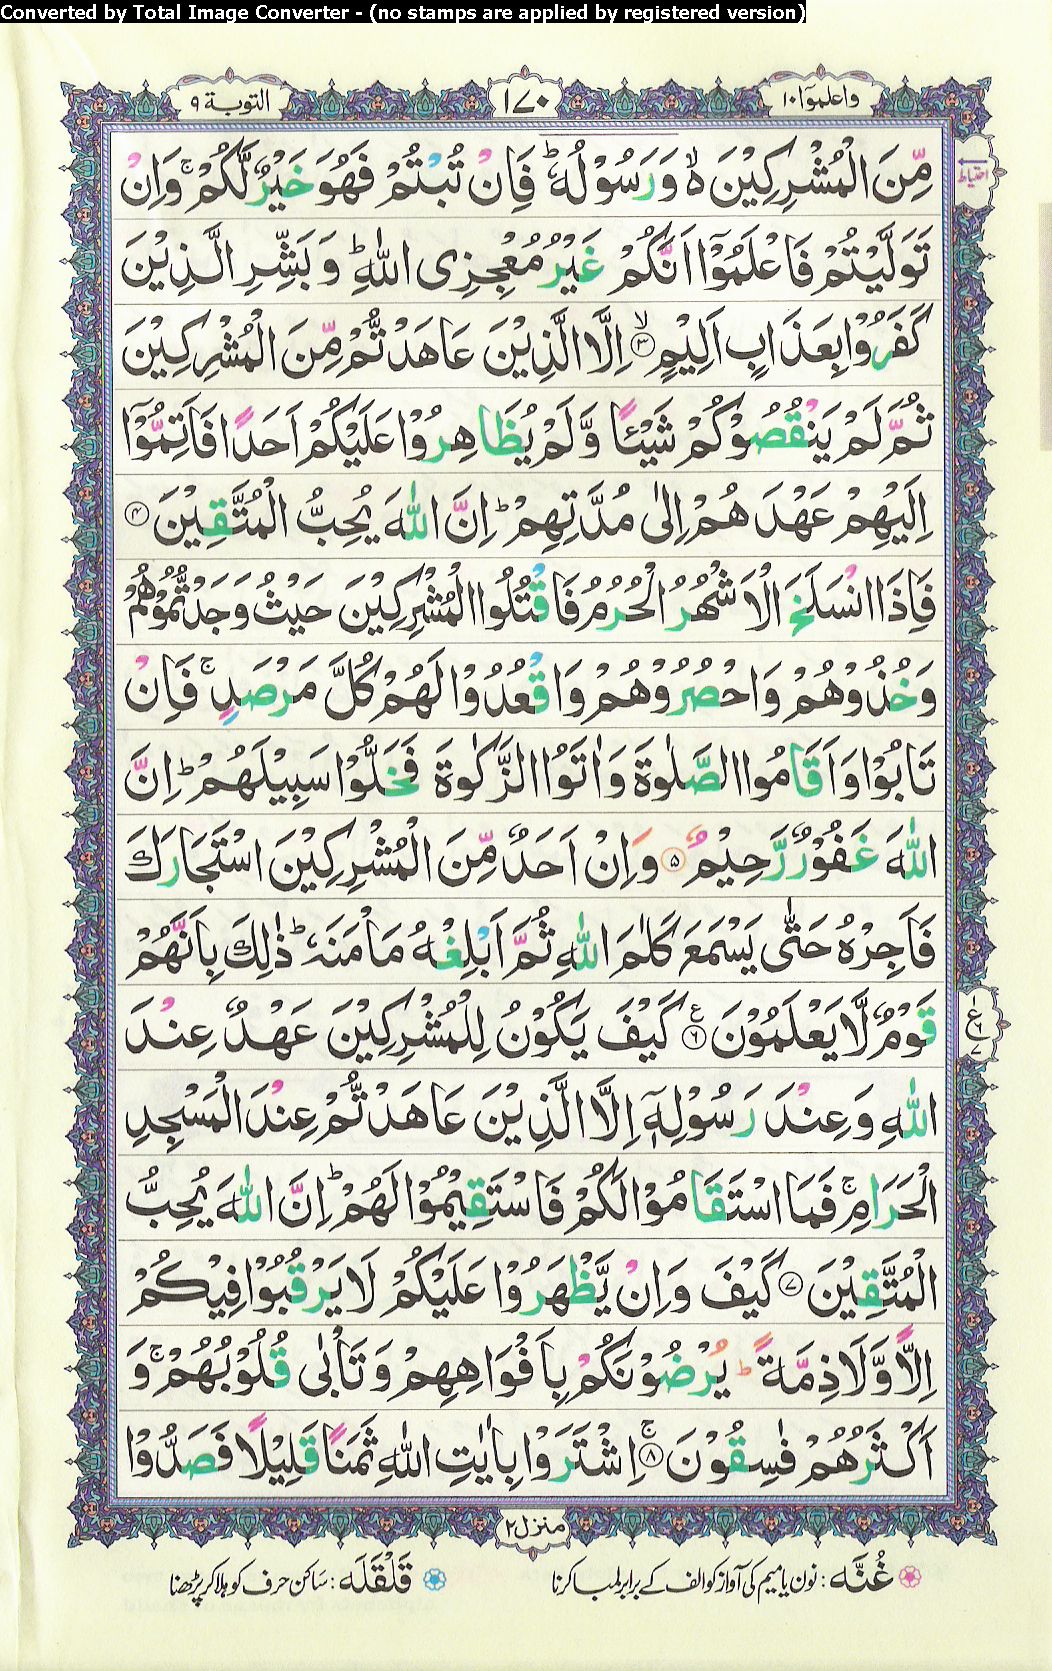 Converted by Total Image Converter - (no stamps are applied by registered version)
واعلموٓا ۱۰
۱۷۰
التوبة ۹
مِّنَ الْمُشْرِكِيْنَ ۙ۬ وَرَسُوْلُهٗ ؕ فَاِنْ تُبْتُمْ فَهُوَ خَيْرٌ لَّكُمْ ۚ وَاِنْ
احتیاط
تَوَلَّيْتُمْ فَاعْلَمُوْۤا اَنَّكُمْ غَيْرُ مُعْجِزِى اللّٰهِ ؕ وَبَشِّرِ الَّذِيْنَ
كَفَرُوْا بِعَذَابٍ اَلِيْمٍ ۙ۳ اِلَّا الَّذِيْنَ عَاهَدْتُّمْ مِّنَ الْمُشْرِكِيْنَ
ثُمَّ لَمْ يَنْقُصُوْكُمْ شَيْـًٔا وَّلَمْ يُظَاهِرُوْا عَلَيْكُمْ اَحَدًا فَاَتِمُّوْۤا
اِلَيْهِمْ عَهْدَهُمْ اِلٰى مُدَّتِهِمْ ؕ اِنَّ اللّٰهَ يُحِبُّ الْمُتَّقِيْنَ ۴
فَاِذَا انْسَلَخَ الْاَشْهُرُ الْحُرُمُ فَاقْتُلُوا الْمُشْرِكِيْنَ حَيْثُ وَجَدْتُّمُوْهُمْ
وَخُذُوْهُمْ وَاحْصُرُوْهُمْ وَاقْعُدُوْا لَهُمْ كُلَّ مَرْصَدٍ ۚ فَاِنْ
تَابُوْا وَاَقَامُوا الصَّلٰوةَ وَاٰتَوُا الزَّكٰوةَ فَخَلُّوْا سَبِيْلَهُمْ ؕ اِنَّ
اللّٰهَ غَفُوْرٌ رَّحِيْمٌ ۵ وَاِنْ اَحَدٌ مِّنَ الْمُشْرِكِيْنَ اسْتَجَارَكَ
فَاَجِرْهُ حَتّٰى يَسْمَعَ كَلٰمَ اللّٰهِ ثُمَّ اَبْلِغْهُ مَاْمَنَهٗ ؕ ذٰلِكَ بِاَنَّهُمْ
قَوْمٌ لَّا يَعْلَمُوْنَ ۶ ع كَيْفَ يَكُوْنُ لِلْمُشْرِكِيْنَ عَهْدٌ عِنْدَ
ع ۶ ۷
اللّٰهِ وَعِنْدَ رَسُوْلِهٖۤ اِلَّا الَّذِيْنَ عَاهَدْتُّمْ عِنْدَ الْمَسْجِدِ
الْحَرَامِ ۚ فَمَا اسْتَقَامُوْا لَكُمْ فَاسْتَقِيْمُوْا لَهُمْ ؕ اِنَّ اللّٰهَ يُحِبُّ
الْمُتَّقِيْنَ ۷ كَيْفَ وَاِنْ يَّظْهَرُوْا عَلَيْكُمْ لَا يَرْقُبُوْا فِيْكُمْ
اِلًّا وَّلَا ذِمَّةً ؕ يُرْضُوْنَكُمْ بِاَفْوَاهِهِمْ وَتَاْبٰى قُلُوْبُهُمْ ۚ وَ
اَكْثَرُهُمْ فٰسِقُوْنَ ۚ۸ اِشْتَرَوْا بِاٰيٰتِ اللّٰهِ ثَمَنًا قَلِيْلًا فَصَدُّوْا
منزل ۲
غُنَّه : نون یا میم کی آواز کو الف کے برابر لمبا کرنا
قَلْقَلَه : ساکن حرف کو ہلا کر پڑھنا